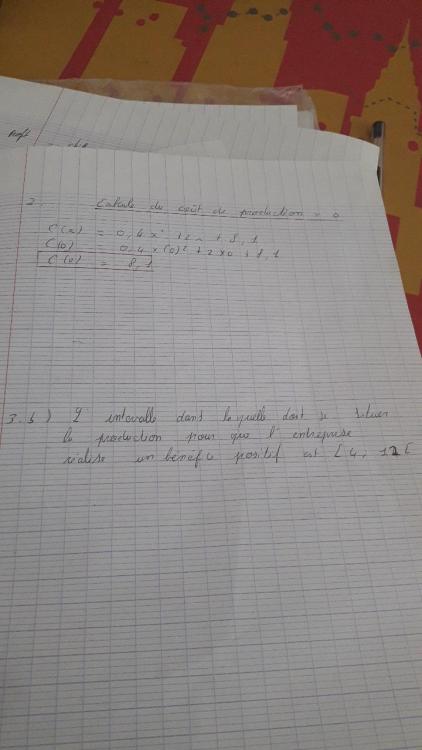 2. Calcule du coût de production x 0
C(x) = 0,4x² + 2x + 8,1
C(0) = 0,4 x (0)² + 2 x 0 + 8,1
C(0) = 8,1
3. b) L' intervalle dans lequelle doit se situer
la production pour que l' entreprise
réalise un bénéfice positif est [4, 12[